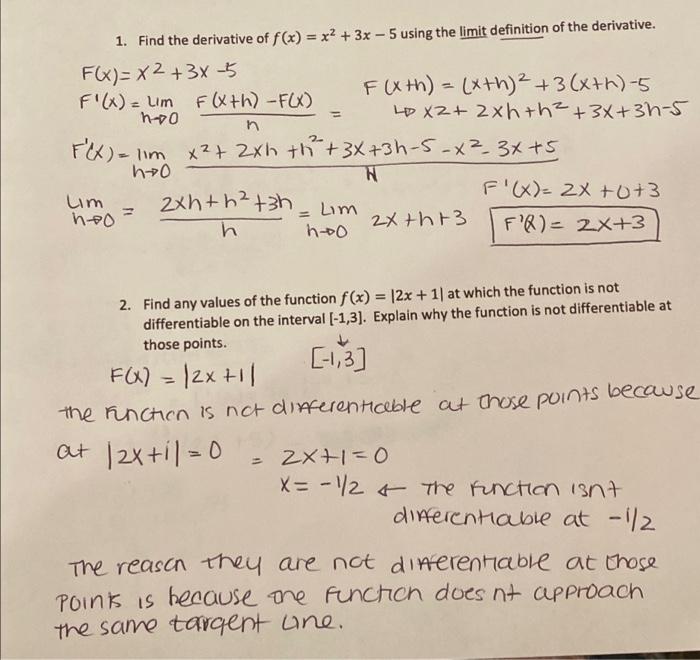 1. Find the derivative of f(x) = x² + 3x − 5 using the limit definition of the derivative.
F(x) = x² + 3x - 5
F(x+h) = (x+h)² + 3(x+h) - 5
↳ x2 + 2xh + h² + 3x + 3h - 5
F'(x) = lim h→0 F(x+h) - F(x) / h =
F'(x) = lim h→0 x² + 2xh + h² + 3x + 3h - 5 - x² - 3x + 5 / h
lim h→0 = 2xh + h² + 3h / h = lim h→0 2x + h + 3
F'(x) = 2x + 0 + 3
F'(x) = 2x + 3
2. Find any values of the function f(x) = |2x + 1| at which the function is not
differentiable on the interval [-1,3]. Explain why the function is not differentiable at
those points.
↓
[-1,3]
F(x) = |2x + 1|
the function is not differentiable at those points because
at |2x+1| = 0 = 2x+1=0
x = -1/2 ← The function isnt
differentiable at -1/2
The reason they are not differentiable at those
points is because the function does nt approach
the same tangent line.